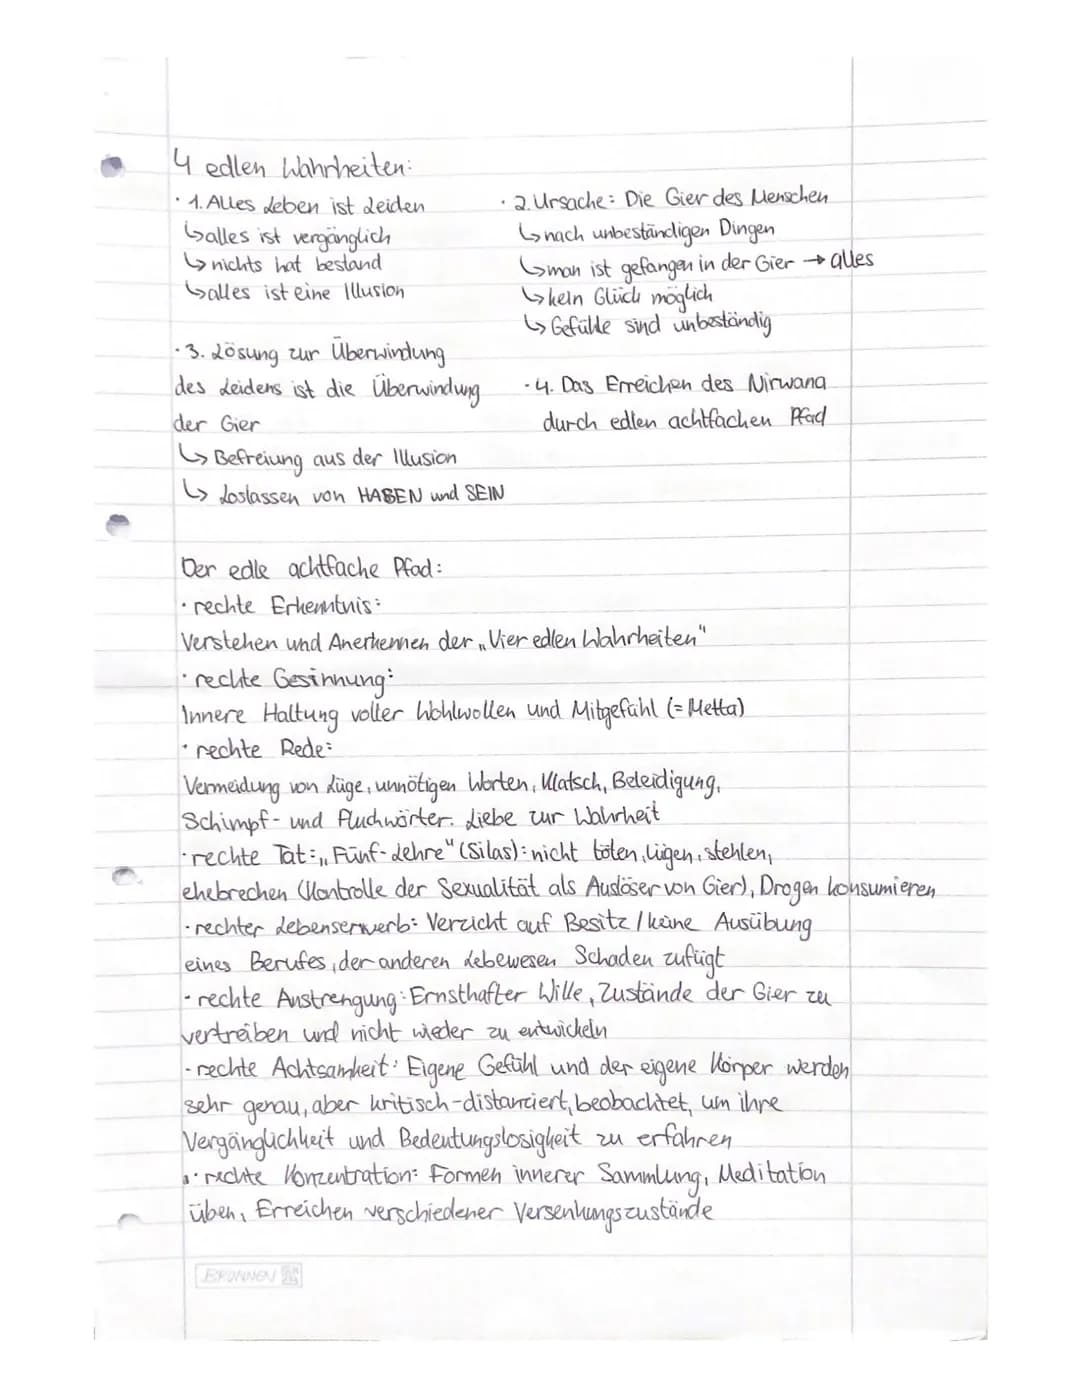 4 edlen Wahrheiten:
· 1. Alles Leben ist Leiden
↳ alles ist vergänglich
↳ nichts hat bestand
↳ alles ist eine Illusion
· 2. Ursache: Die Gier des Menschen
↳ nach unbeständigen Dingen
↳ man ist gefangen in der Gier → alles
↳ kein Glück möglich
↳ Gefühle sind unbeständig
· 3. Lösung zur Überwindung
des Leidens ist die Überwindung
der Gier
↳ Befreiung aus der Illusion
↳ Loslassen von HABEN und SEIN
· 4. Das Erreichen des Nirwana
durch edlen achtfachen Pfad
Der edle achtfache Pfad:
· rechte Erkenntnis:
Verstehen und Anerkennen der „Vier edlen Wahrheiten"
· rechte Gesinnung:
Innere Haltung voller Wohlwollen und Mitgefühl (= Metta)
· rechte Rede:
Vermeidung von Lüge, unnötigen Worten, Klatsch, Beleidigung,
Schimpf- und Fluchwörter. Liebe zur Wahrheit
· rechte Tat: „Fünf-Lehre" (Silas): nicht töten, lügen, stehlen,
ehebrechen (Kontrolle der Sexualität als Auslöser von Gier), Drogen konsumieren
· rechter Lebenserwerb: Verzicht auf Besitz / keine Ausübung
eines Berufes, der anderen Lebewesen Schaden zufügt
· rechte Anstrengung: Ernsthafter Wille, Zustände der Gier zu
vertreiben und nicht wieder zu entwickeln
· rechte Achtsamkeit: Eigene Gefühl und der eigene Körper werden
sehr genau, aber kritisch-distanziert, beobachtet, um ihre
Vergänglichkeit und Bedeutungslosigkeit zu erfahren
· rechte Konzentration: Formen innerer Sammlung, Meditation
üben, Erreichen verschiedener Versenkungszustände
BRUNNEN